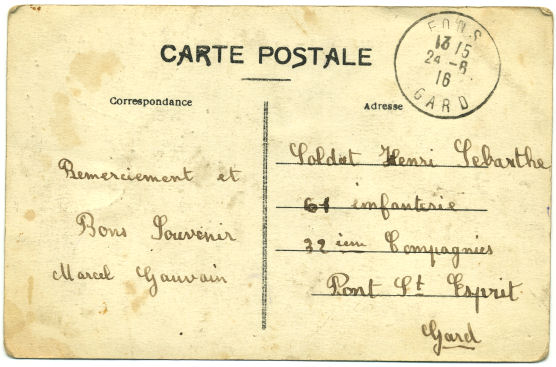 CARTE POSTALE
FONS
13 15
24 - 6
16
GARD
Correspondance
Adresse
Remerciement et
Bons Souvenir
Marcel Gauvain
Soldat Henri Lebarthe
61 imfanterie
32 ième Compagnies
Pont St Esprit
Gard